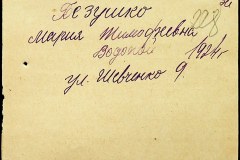 Пезушко
Мария Тимофеевна
Водопой 1924г
ул. Шевченко 9.